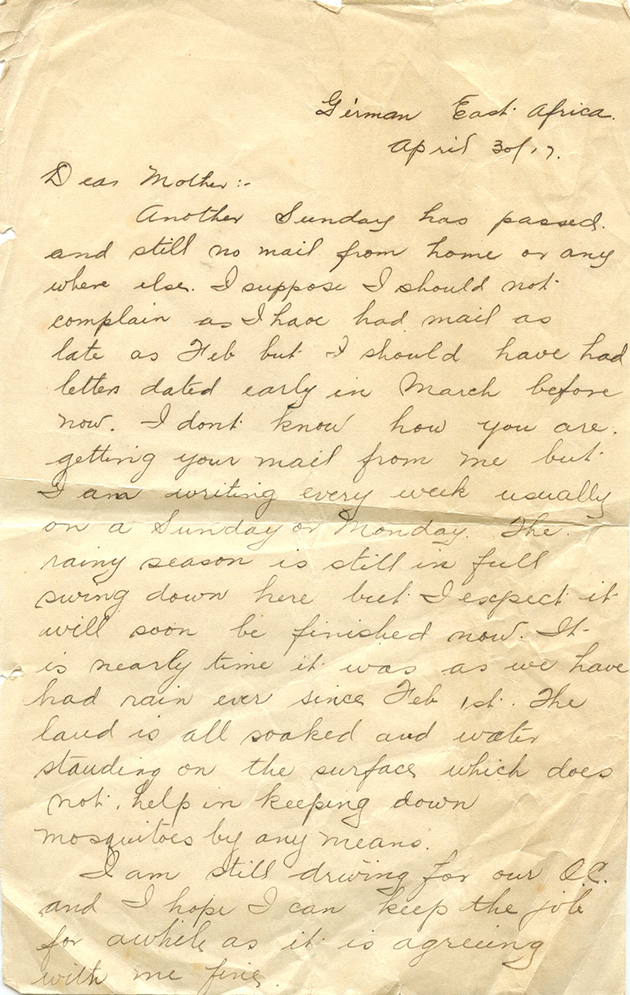 German East Africa.
April 30/17.
Dear Mother:-
Another Sunday has passed.
and still no mail from home or any
where else. I suppose I should not
complain as I have had mail as
late as Feb but I should have had
letters dated early in March before
now. I dont know how you are.
getting your mail from me but
I am writing every week usually
on a Sunday or Monday. The
rainy season is still in full
swing down here but I expect it
will soon be finished now. It
is nearly time it was as we have
had rain ever since Feb 1st. The
land is all soaked and water
standing on the surface which does
not help in keeping down
mosquitoes by any means.
I am still driving for our O.C.
and I hope I can keep the job
for awhile as it is agreeing
with me fine.